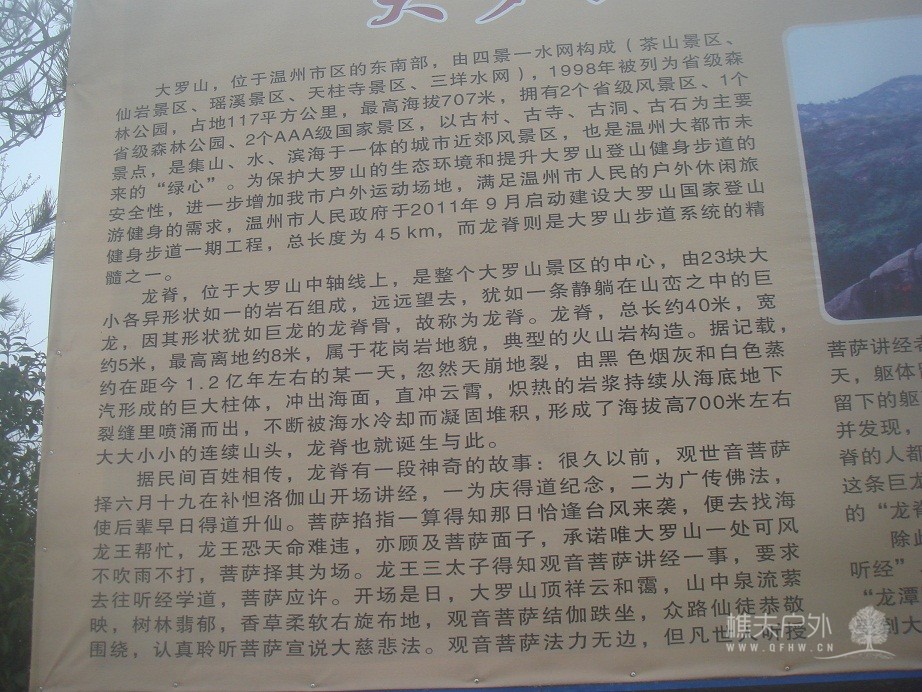 大罗山，位于温州市区的东南部，由四景一水网构成（茶山景区、
仙岩景区、瑶溪景区、天柱寺景区、三垟水网），1998年被列为省级森
林公园，占地117平方公里，最高海拔707米，拥有2个省级风景区、1个
省级森林公园、2个AAA级国家景区，以古村、古寺、古洞、古石为主要
景点，是集山、水、滨海于一体的城市近郊风景区，也是温州大都市未
来的“绿心”。为保护大罗山的生态环境和提升大罗山登山健身步道的
安全性，进一步增加我市户外运动场地，满足温州市人民的户外休闲旅
游健身的需求，温州市人民政府于2011年9月启动建设大罗山国家登山
健身步道一期工程，总长度为45km，而龙脊则是大罗山步道系统的精
髓之一。
龙脊，位于大罗山中轴线上，是整个大罗山景区的中心，由23块大
小各异形状如一的岩石组成，远远望去，犹如一条静躺在山峦之中的巨
龙，因其形状犹如巨龙的龙脊骨，故称为龙脊。龙脊，总长约40米，宽
约5米，最高离地约8米，属于花岗岩地貌，典型的火山岩构造。据记载，
约在距今1.2亿年左右的某一天，忽然天崩地裂，由黑色烟灰和白色蒸
汽形成的巨大柱体，冲出海面，直冲云霄，炽热的岩浆持续从海底地下
裂缝里喷涌而出，不断被海水冷却而凝固堆积，形成了海拔高700米左右
大大小小的连续山头，龙脊也就诞生与此。
据民间百姓相传，龙脊有一段神奇的故事：很久以前，观世音菩萨
择六月十九在补怛洛伽山开场讲经，一为庆得道纪念，二为广传佛法，
使后辈早日得道升仙。菩萨掐指一算得知那日恰逢台风来袭，便去找海
龙王帮忙，龙王恐天命难违，亦顾及菩萨面子，承诺唯大罗山一处可风
不吹雨不打，菩萨择其为场。龙王三太子得知观音菩萨讲经一事，要求
去往听经学道，菩萨应许。开场是日，大罗山顶祥云和霭，山中泉流萦
映，树林翡郁，香草柔软右旋布地，观音菩萨结伽趺坐，众路仙徒恭敬
围绕，认真聆听菩萨宣说大慈悲法。观音菩萨法力无边，但凡世人听授
菩萨讲经
天，躯体
留下的躯
并发现，
脊的人都
这条巨龙
的“龙脊
除此
听经”
“龙潭
到大
樵夫户外
WWW.QFHW.CN